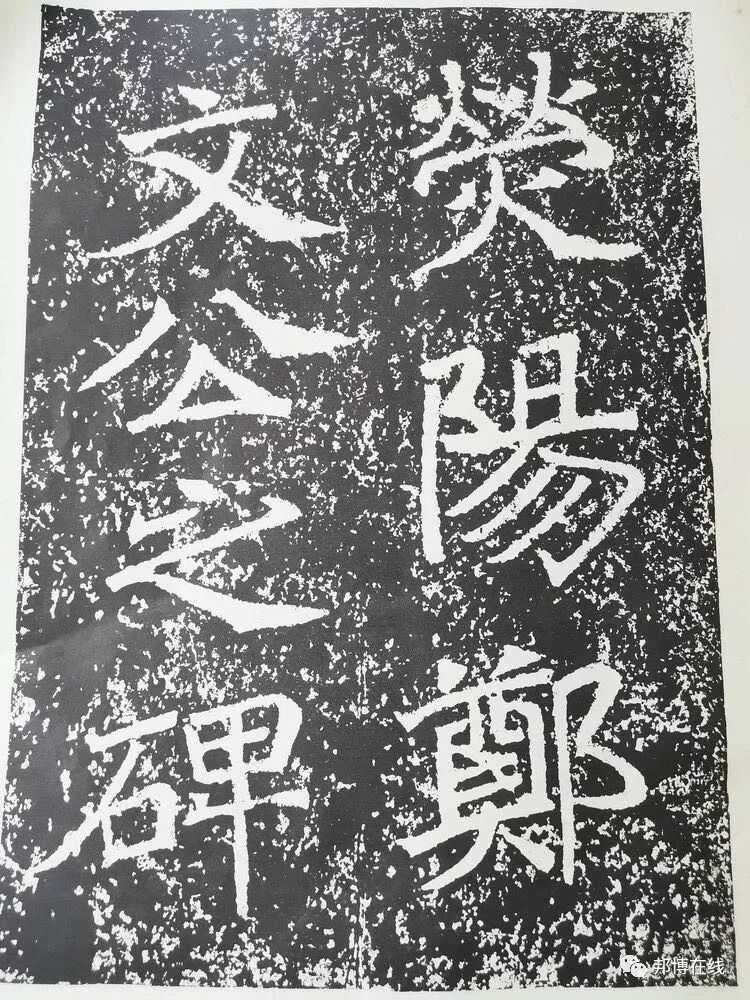 熒陽鄭
文公之碑
邦博在线